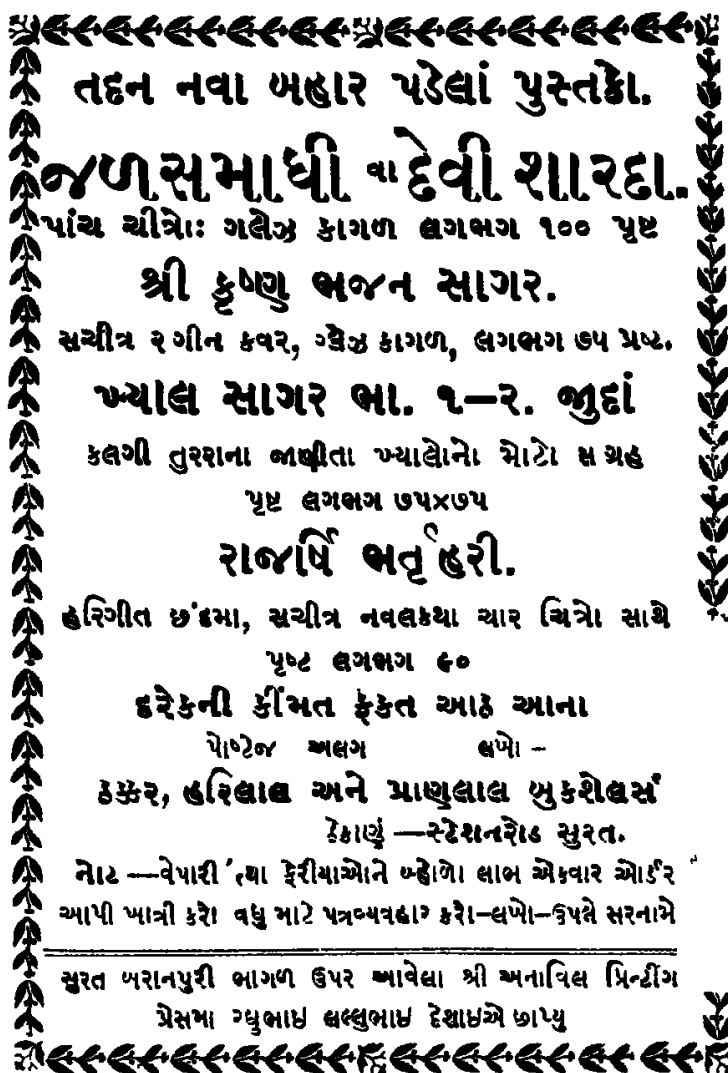 તદન નવા બહાર પડેલાં પુસ્તકો.
જળસમાધી વા દેવી શારદા.
પાંચ ચીત્રો: ગલેઝ કાગળ લગભગ ૧૦૦ પૃષ્ટ
શ્રી કૃષ્ણ ભજન સાગર.
સચીત્ર રગીન કવર, ગ્લેઝ કાગળ, લગભગ ૭૫ પ્રષ્ટ.
ખ્યાલ સાગર ભા. ૧–૨. જાુદાં
કલગી તુરરાના જાણીતા ખ્યાલોનો મોટો સગ્રહ
પૃષ્ટ લગભગ ૭૫x૭૫
રાજર્ષિ ભર્તૃહરી.
હરિગીત છંદમા, સચીત્ર નવલકથા ચાર ચિત્રો સાથે
પૃષ્ટ લગભગ ૯૦
દરેકની કીંમત ફકત આઠ આના
પોષ્ટેજ અલગ લખો –
ઠક્કર, હરિલાલ અને પ્રાણલાલ બુકશેલર્સ
ઠેકાણું —સ્ટેશનરોડ સુરત.
નોટ —વેપારી તથા ફેરીયાઓને બ્હોળો લાભ એકવાર ઓર્ડર
આપી ખાત્રી કરો વધુ માટે પત્રવ્યવહાર કરો–લખો–ઉપલે સરનામે
સુરત બરાનપુરી ભાગળ ઉપર આવેલા શ્રી અનાવિલ પ્રિન્ટીંગ
પ્રેસમા લલ્લુભાઇ દેશાઇએ છાપ્યુ